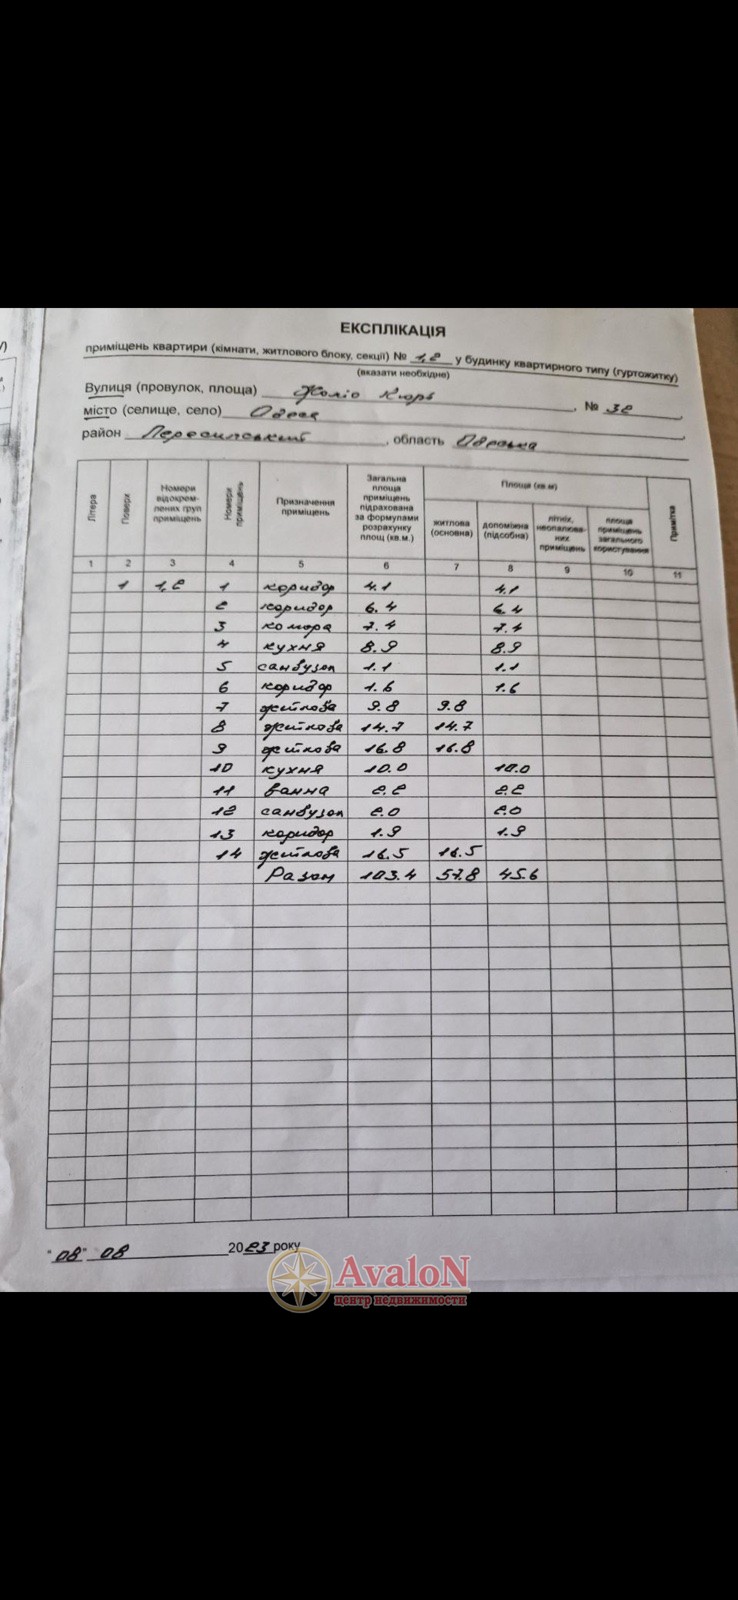 ЕКСПЛІКАЦІЯ
приміщень квартири (кімнати, житлового блоку, секції) № 1,2 у будинку квартирного типу (гуртожитку)
(вказати необхідне)
Вулиця (провулок, площа) Жоліо Кюрі, № 32,
місто (селище, село) Одеса
район Пересипський, область Одеська
Літера Поверх Номери відокрем-лених груп приміщень Номери приміщень Призначення приміщень Загальна площа приміщень підрахована за формулами розрахунку площ (кв.м.) Площа (кв.м) Примітка
житлова (основна) допоміжна (підсобна) літніх, неопалюва-них приміщень площа приміщень загального користування
1 2 3 4 5 6 7 8 9 10 11
1 1,2 1 коридор 4.1 4.1
2 коридор 6.4 6.4
3 комора 7.4 7.4
4 кухня 8.9 8.9
5 санвузол 1.1 1.1
6 коридор 1.6 1.6
7 житлова 9.8 9.8
8 житлова 14.7 14.7
9 житлова 16.8 16.8
10 кухня 10.0 10.0
11 ванна 2.2 2.2
12 санвузол 2.0 2.0
13 коридор 1.9 1.9
14 житлова 16.5 16.5
Разом 103.4 57.8 45.6
"08" 08 2023 року
AvaloN
центр недвижимости